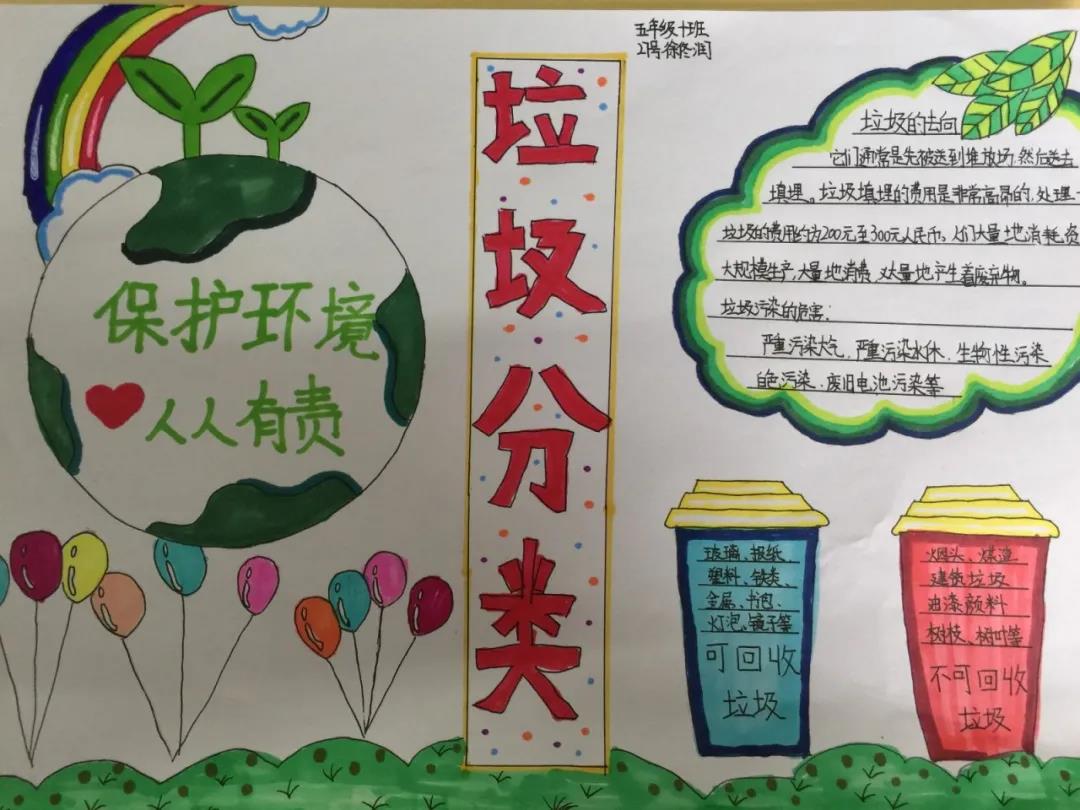 五年级十班
21号徐佟润
垃圾分类
保护环境
人人有责
垃圾的去向
它们通常是先被送到堆放场,然后送去
填埋。垃圾填埋的费用是非常高昂的,处理一
垃圾的费用约为200元至300元人民币。人们大量地消耗资
大规模生产,大量地消费,又大量地产生着废弃物。
垃圾污染的危害:
严重污染大气、严重污染水体、生物性污染
白色污染、废旧电池污染等
玻璃、报纸、
塑料、铁类、
金属、书包、
灯泡、镜子等
可回收
垃圾
烟头、煤渣
建筑垃圾
油漆颜料
树枝、树叶等
不可回收
垃圾